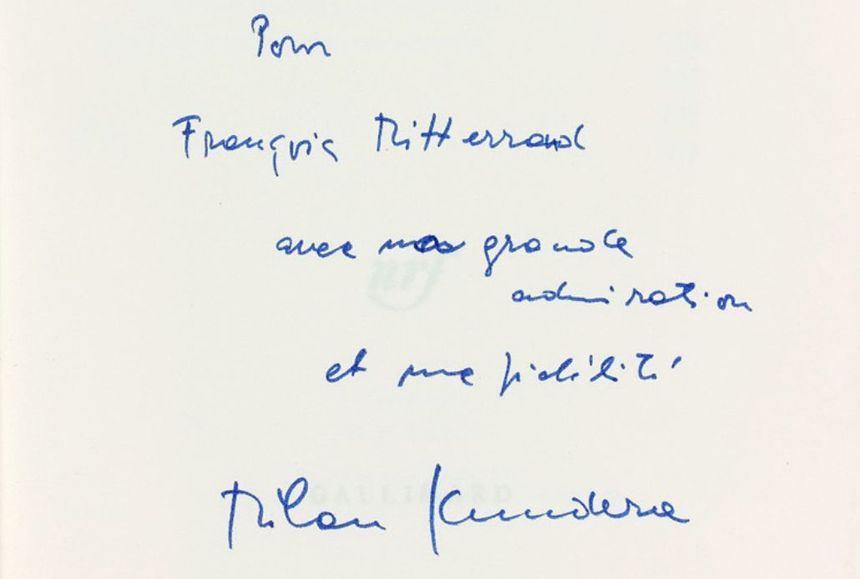 Pour
François Mitterrand
avec ma grande
admiration
et ma fidélité
Milan Kundera
nrf
GALLIMARD